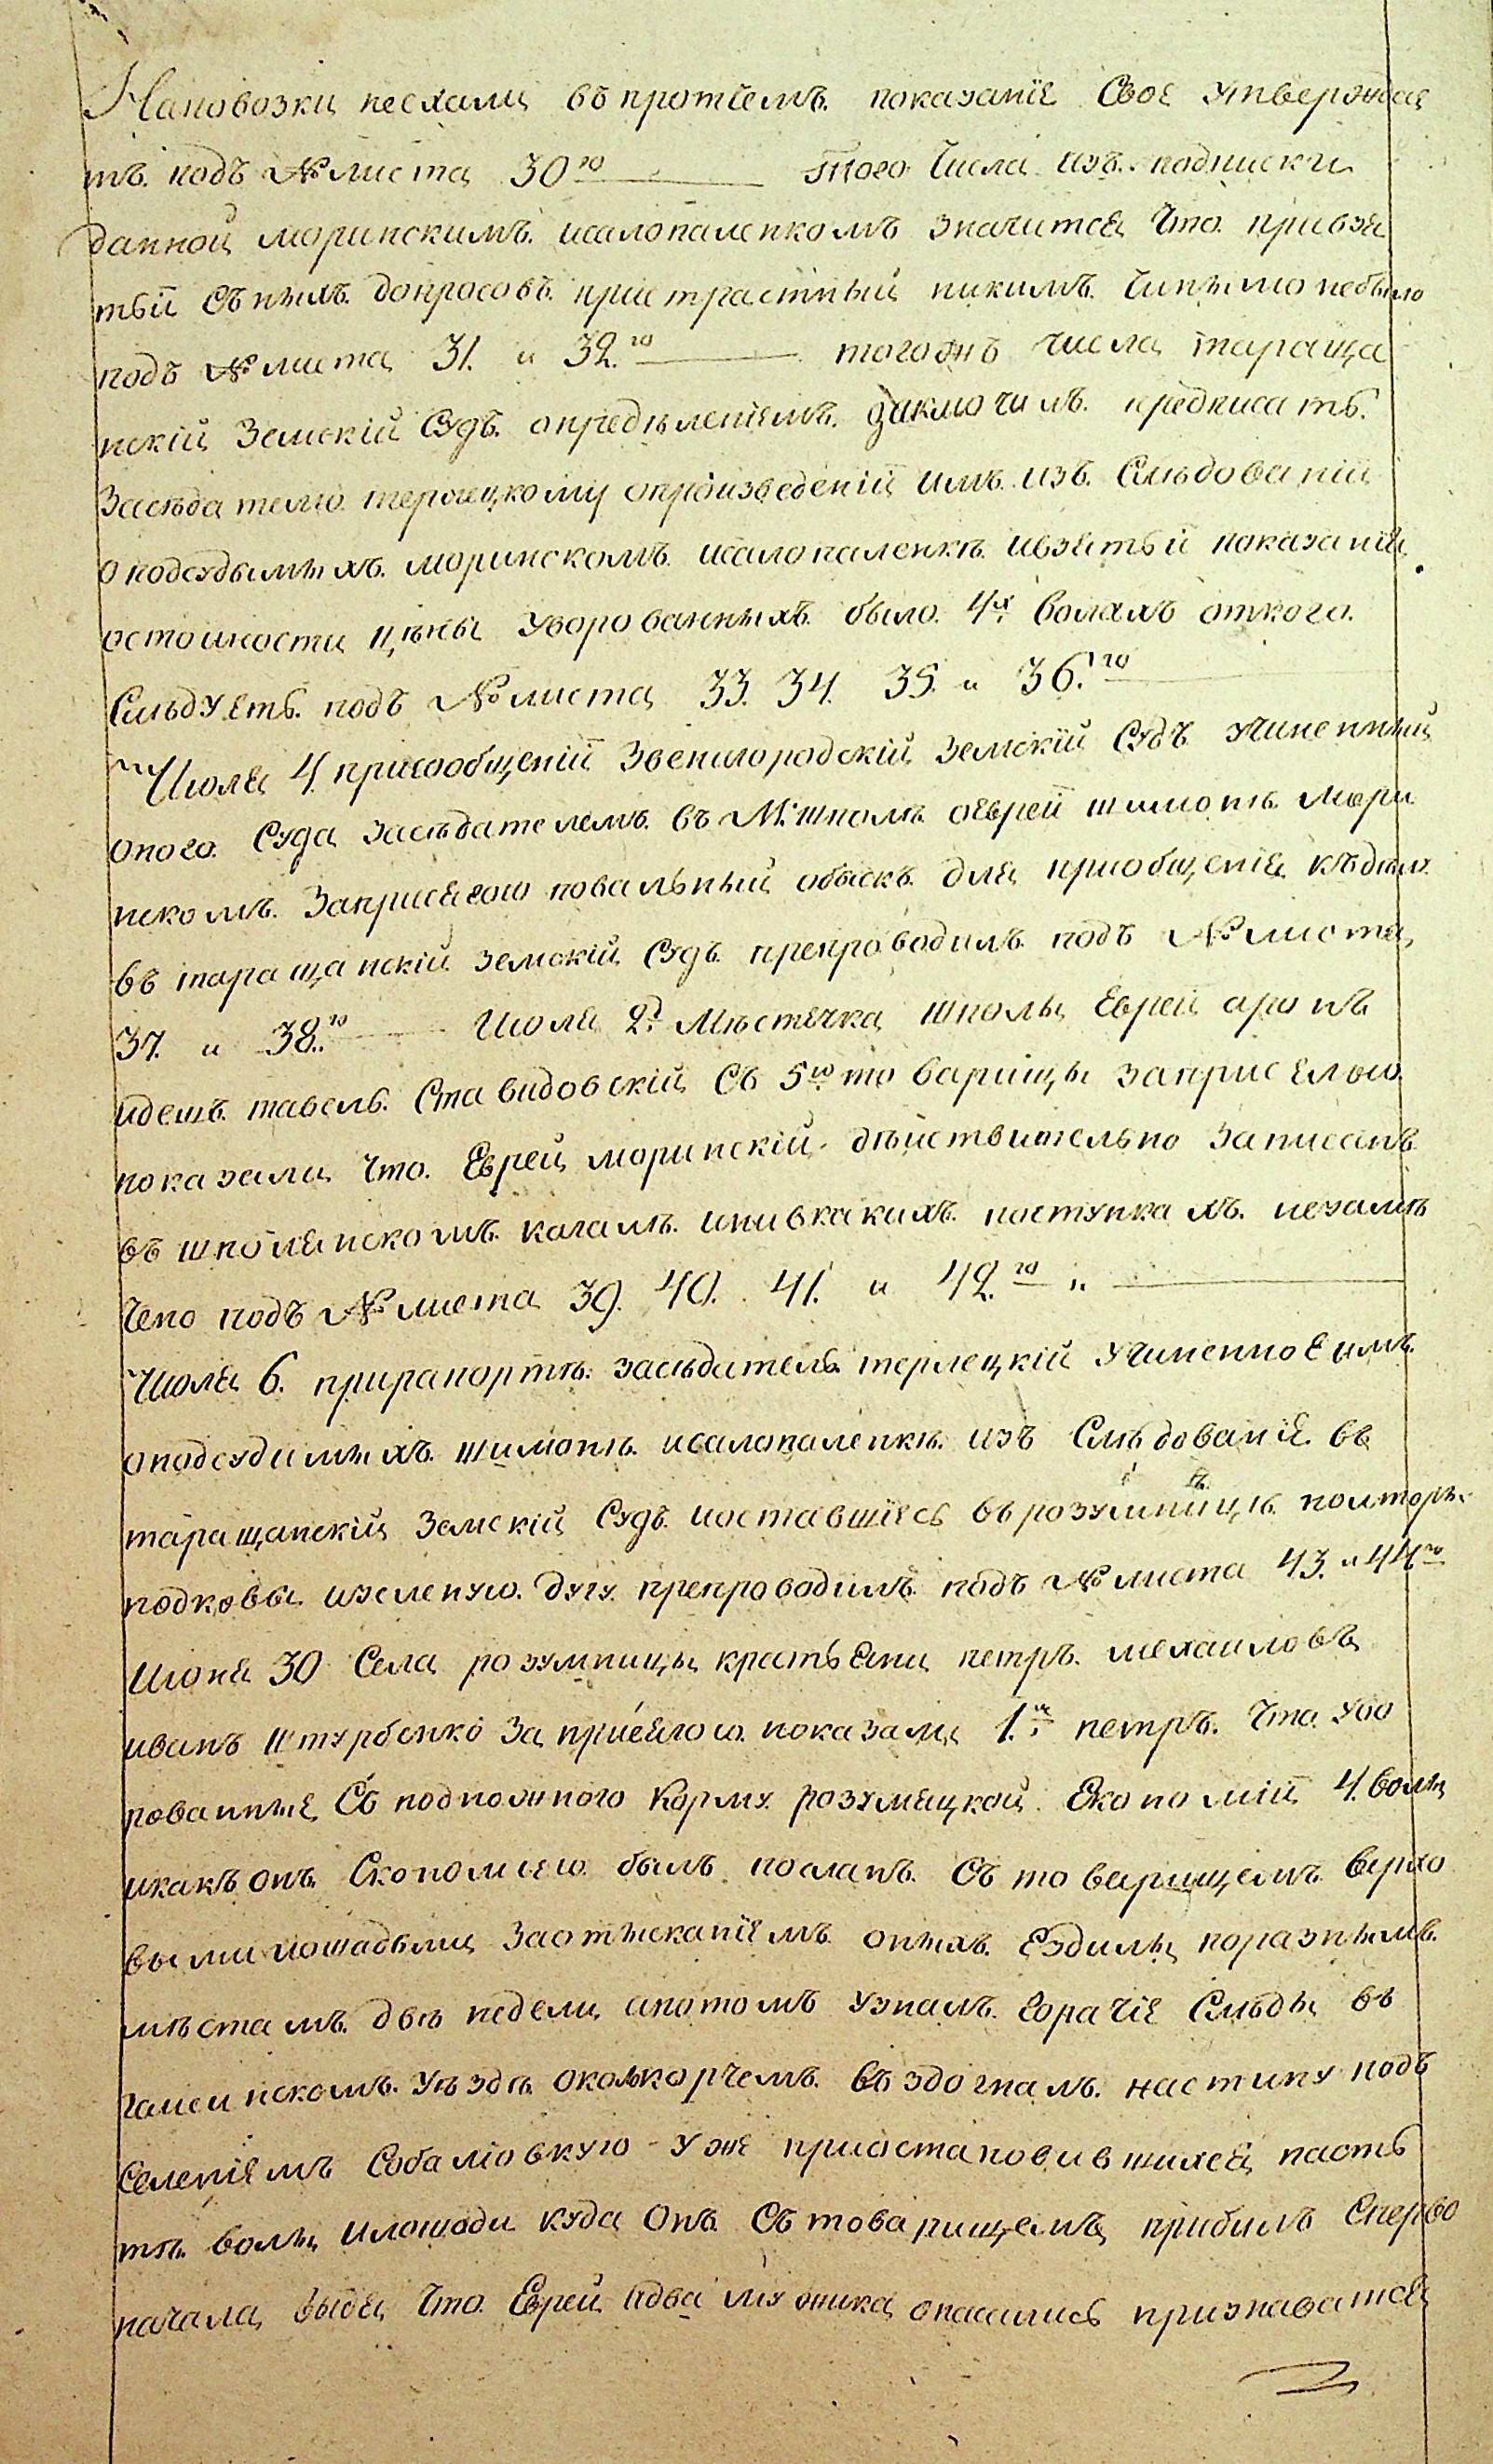 Наповозки нехали въ протчемъ показаніе Свое утверждае
тъ подъ № листа 30го —— того Числа изъ подписки
данной моринскимъ исалопаленкомъ значится Что привзя
тьи Съ нихъ допросовъ пристрастный никимъ Чинимо небыло
подъ № листа 31. и 32.го —— тогожъ числа тараща
нскій Земскій Судъ опредѣленіемъ заключилъ предписать
Засѣдателю терлецкому опроизведеніи имъ изъ Слѣдованіи
оподсудымыхъ моринскомъ исалопаленкѣ ивзятьи показаній
остоиности цѣны уворованныхъ было 4х волахъ откого
Слѣдуетъ подъ № листа 33. 34. 35. и 36.го ——
Июля 4. присообщеніи Звенигородскій Земскій Судъ учиненный
оного Суда засѣдателемъ въ М: шполѣ оеврей шимонѣ мори
нскомъ Заприсягою повальный обыскъ для приобщенія къдѣлу
въ таращанскій земскій Судъ препроводилъ подъ № листа
37. и 38.го —— Июля 2д Мѣстечка шполы Еврей аронъ
идешъ тавель Ставидовскій Съ 5ю товарищы заприсягою
показали Что Еврей моринскій дѣйствительно Записанъ
въ шполянскомъ кагалѣ инивкакихъ поступкахъ незамѣ
чено подъ № листа 39. 40. 41. и 42.го и ——
Июля 6. прирапортѣ засѣдатель терлецкій Учиненное имъ
оподсудимыхъ шимонѣ исалопаленкѣ изъ Слѣдованіе въ
таращанскій Земскій Судъ иоставшіесь въ розумницѣ полторы
подковы ижелезную дугу препроводилъ подъ № листа 43. и 44го
Июня 30 Села розумницы крестьяни петръ михаиловъ
иванъ штурбенко Заприсягою показали 1.й петръ Что уво
рованные Съ подножного корму розумицкой Економіи 4. волы
икакъ онъ Економіею былъ посланъ Съ товарищемъ верхо
выми лошадьми Заотысканіемъ оныхъ Ездилы поразнымъ
мѣстамъ двѣ недели апотомъ узналъ горачіе Слѣды въ
гаисинскомъ Уѣздѣ околокорчемъ въздогналъ настину подъ
Селеніемъ Собалювкую уже приостановившихся пасть
тѣ волы илошади куда Онъ Съ товарищемъ прибилъ Сперво
начала видя Что Еврей идва мужика опасались признаватся